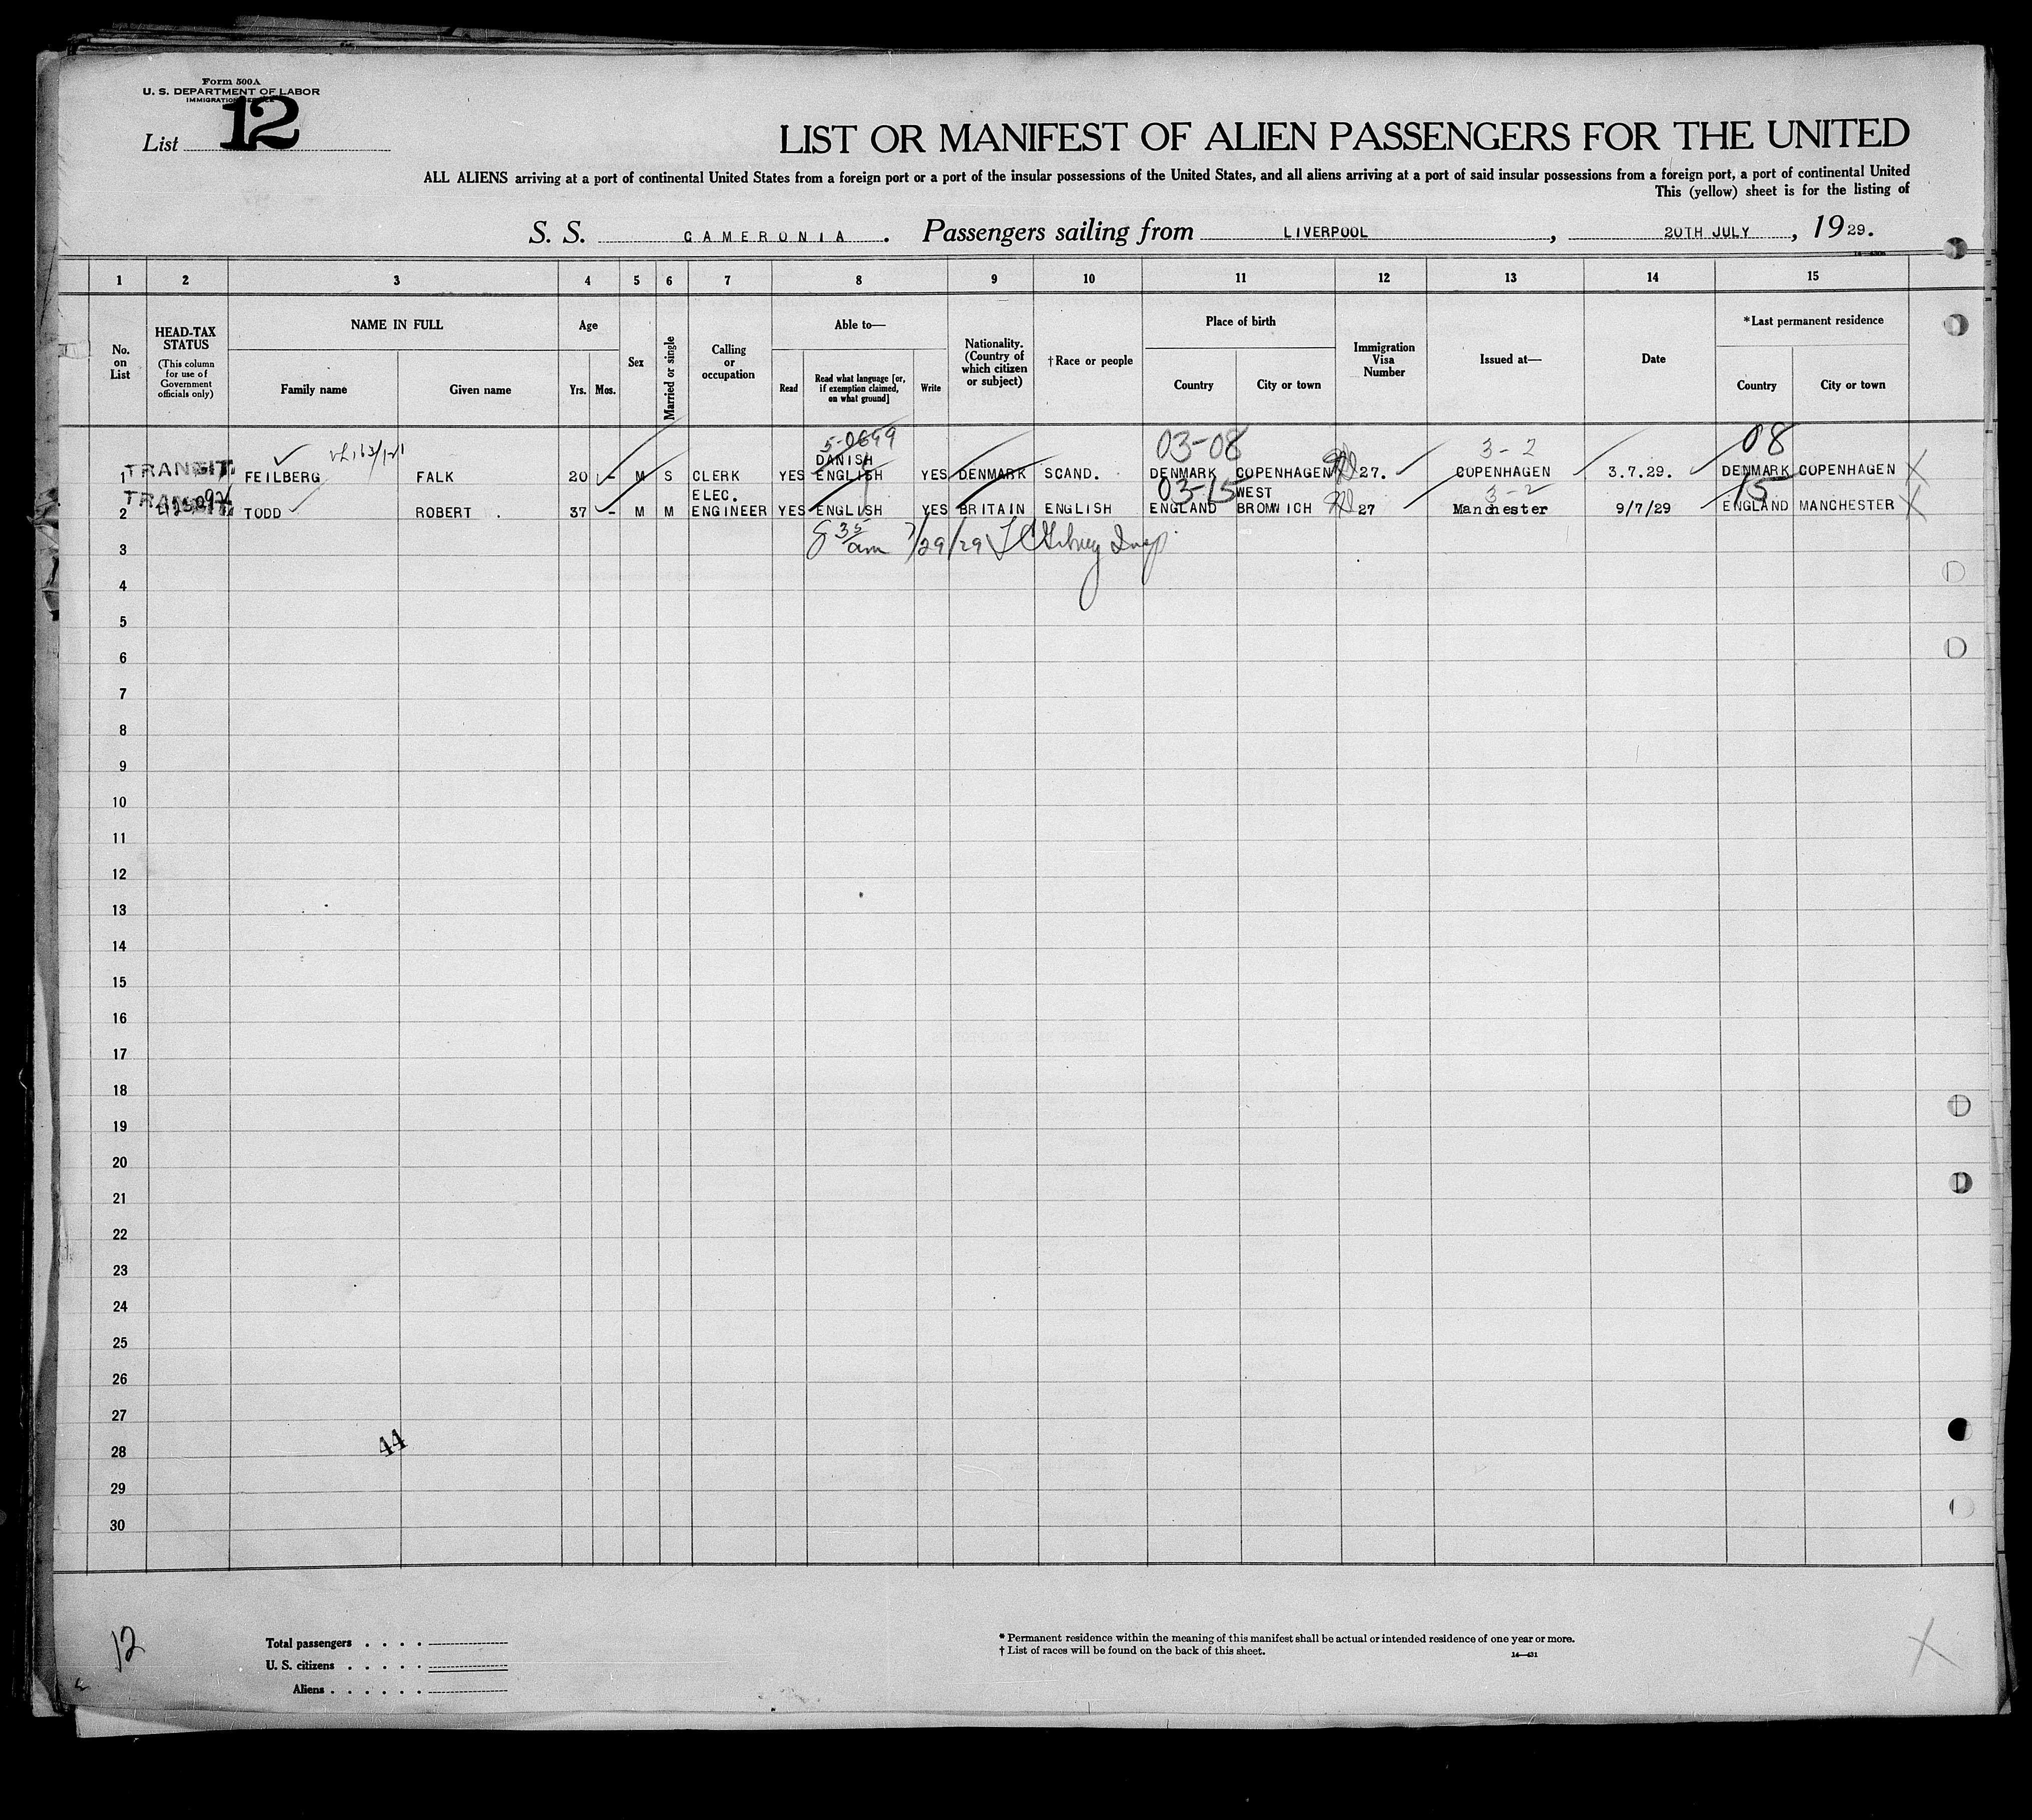 Form 500A
U. S. DEPARTMENT OF LABOR
IMMIGRATION SERVICE
List 12
LIST OR MANIFEST OF ALIEN PASSENGERS FOR THE UNITED
ALL ALIENS arriving at a port of continental United States from a foreign port or a port of the insular possessions of the United States, and all aliens arriving at a port of said insular possessions from a foreign port, a port of continental United
This (yellow) sheet is for the listing of
S. S. CAMERONIA. Passengers sailing from LIVERPOOL, 20TH JULY, 1929.
1 2 3 4 5 6 7 8 9 10 11 12 13 14 15
No. on List
HEAD-TAX STATUS
(This column for use of Government officials only)
NAME IN FULL
Family name Given name
Age
Yrs. Mos.
Sex
Married or single
Calling or occupation
Able to—
Read Read what language [or, if exemption claimed, on what ground] Write
Nationality. (Country of which citizen or subject)
†Race or people
Place of birth
Country City or town
Immigration Visa Number
Issued at—
Date
*Last permanent residence
Country City or town
5-0699 03-08 3-2 08
DANISH
1 TRANSIT. FEILBERG FALK 20 - M S CLERK YES ENGLISH YES DENMARK SCAND. DENMARK COPENHAGEN 27. COPENHAGEN 3.7.29. DENMARK COPENHAGEN
ELEC. 03-15 WEST 3-2 15
2 TRANSIT TODD ROBERT . 37 - M M ENGINEER YES ENGLISH YES BRITAIN ENGLISH ENGLAND BROMWICH 27 Manchester 9/7/29 ENGLAND MANCHESTER
8 35/am 7/29/29 Insp.
3
4
5
6
7
8
9
10
11
12
13
14
15
16
17
18
19
20
21
22
23
24
25
26
27
44
28
29
30
12
Total passengers . . . .
U. S. citizens . . . . .
Aliens . . . . . .
* Permanent residence within the meaning of this manifest shall be actual or intended residence of one year or more.
† List of races will be found on the back of this sheet.
14—431